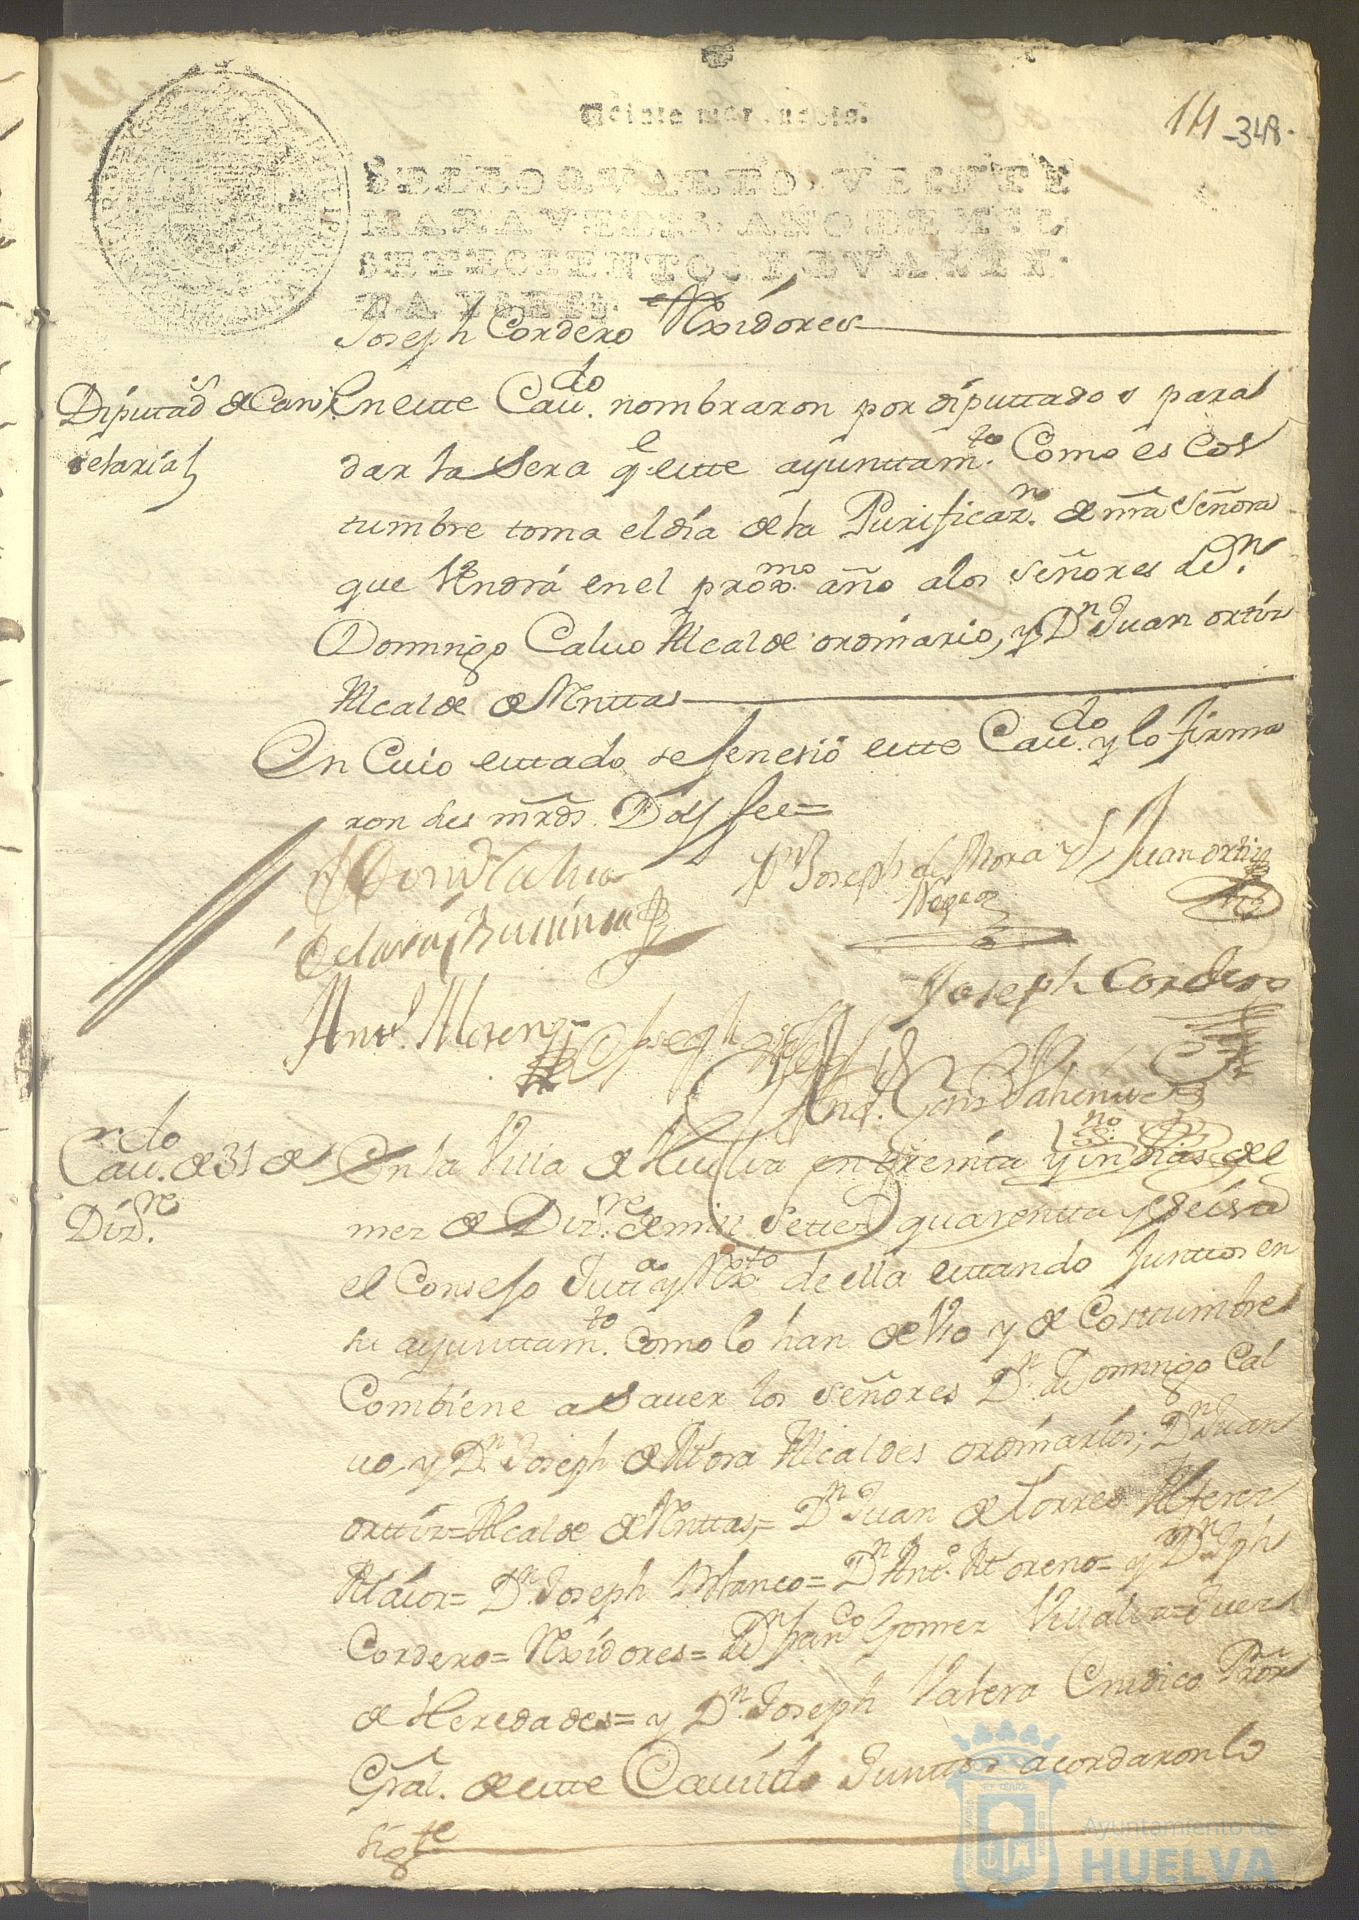 14 -348-
Veinte maravedis.
SELLO QVARTO, VEINTE
MARAVEDIS, AÑO DE MIL
SETECIENTOS Y QVAREN-
TA Y SEIS.
Joseph Cordero Rxidores
Diputads de Can
delarial
En este Caudo. nombraron por diputtados para
dar la Sera qe. este ayunttamto. Como es cos
tumbre toma el dia de la Purificazn. de nra Señora
que Vendrá en el proxmo. año a los señores dn.
Domingo Caluo Alcalde ordinario, y Dn Juan ortiz
Alcalde de Mittas
En Cuio esttado se fenesió este Caudo. y lo firma
ron sus mrds. Doy fee=
Joseph de Mora y
Negro
Juan ortiz
Joseph Cordero
Anto. Moreno
Caudo. de 31 de
Dizre.
En la Villa de Huelva en treinta y un dias del
mez de Dizre. de mill Settez quarentta y seis a
el Consejo Justa y Rxto de ella esttando Junttos en
su ayunttamto. Como lo han de Vso y de Costtumbre
Combiene a Sauer los señores Dn. Domingo Cal
uo y Dn. Joseph de Mora Alcaldes ordinarios; Dn Juan
orttiz= Alcalde de Mittas,= Dn Juan de Torres Alferez
Maior= Dn. Joseph Blanco= Dn Anto. Moreno= y Dn Jph
Cordero= Rxidores= Dn franco Gomez Villalva= Juez
de Heredades= y Dn. Joseph Valero Cindico Pror
Gral. de este Cauildo Junttos acordaron lo
sigte
Ayuntamiento de
HUELVA